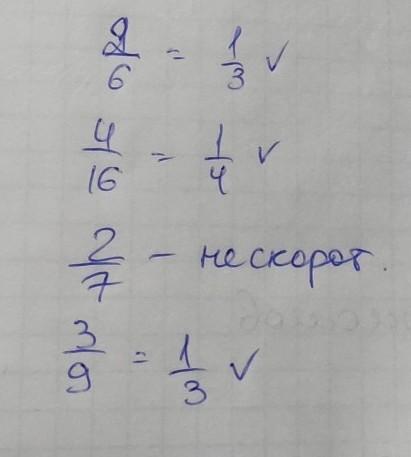 2/6 = 1/3 ✓
4/16 = 1/4 ✓
2/7 - нескорот.
3/9 = 1/3 ✓